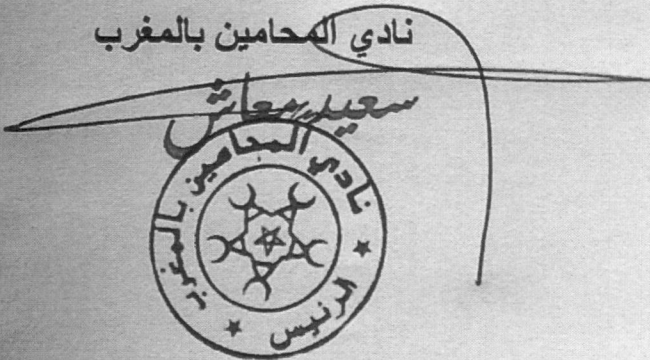 نادي المحامين بالمغرب
سعيد معاش
نادي المحامين بالمغرب
الرئيس